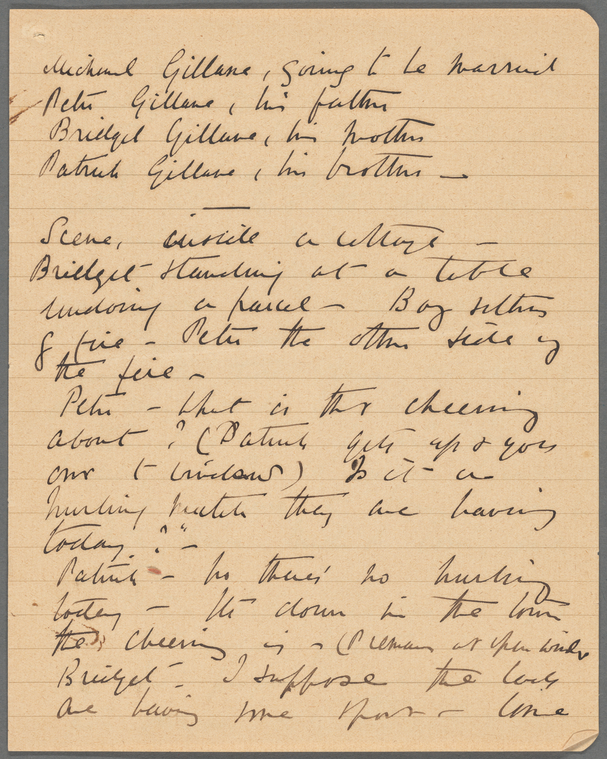 Michael Gillane, going to be married
Peter Gillane, his father
Bridget Gillane, his mother
Patrick Gillane, his brother —
Scene, inside a cottage —
Bridget standing at a table
undoing a parcel — Boy sitting
fire — Peter the other side of
the fire —
Peter — What is that cheering
about? (Patrick gets up & goes
over to window) Is it a
hurling match they are having
today?" —
Patrick — No there's no hurling
today — It's down in the town
the cheering is — (Remains at open window
Bridget — I suppose the lads
are having some sport — Come